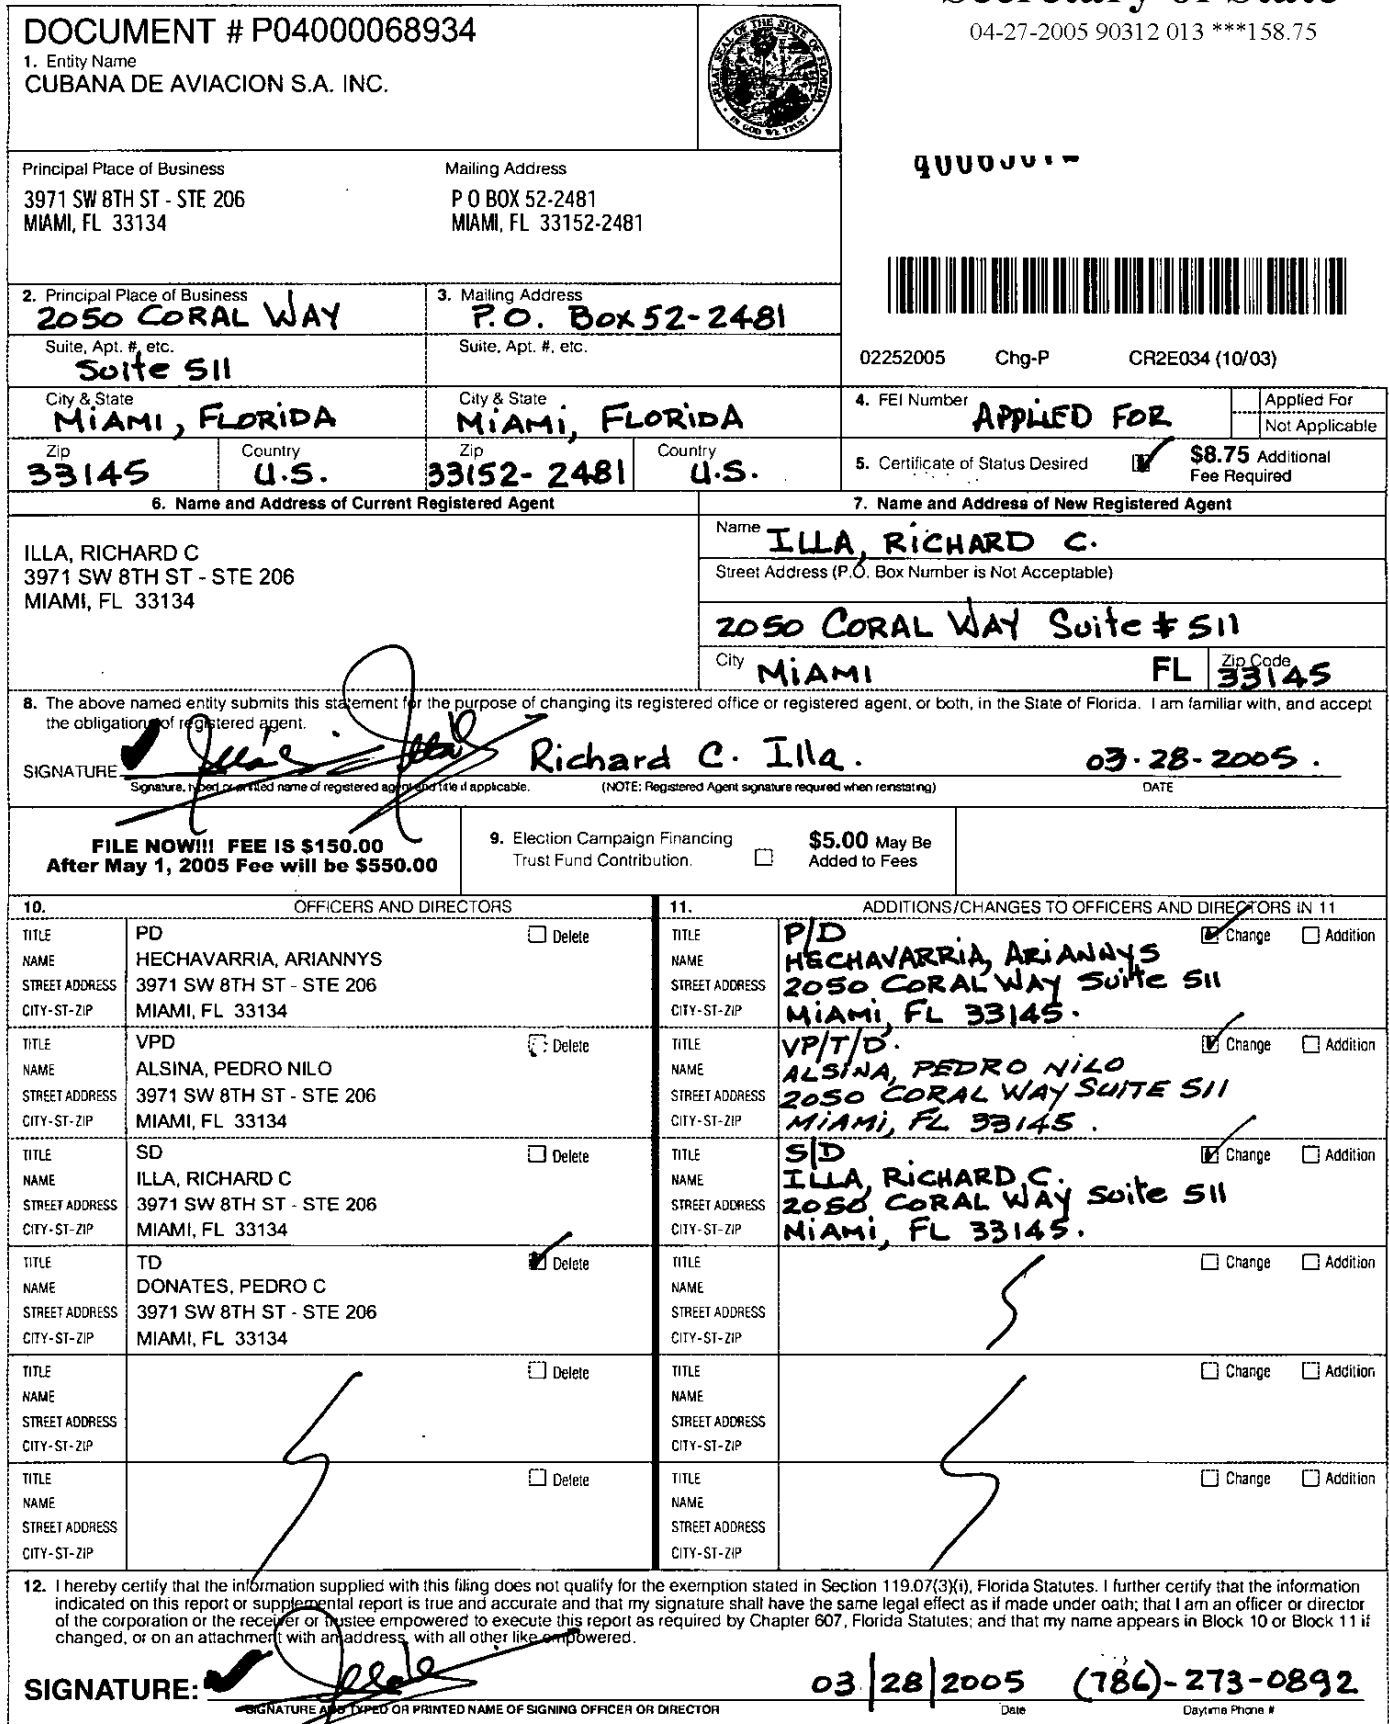 Secretary of State
04-27-2005 90312 013 ***158.75
DOCUMENT # P04000068934
1. Entity Name
CUBANA DE AVIACION S.A. INC.
GREAT SEAL OF THE STATE OF FLORIDA
IN GOD WE TRUST
Principal Place of Business
3971 SW 8TH ST - STE 206
MIAMI, FL 33134
Mailing Address
P O BOX 52-2481
MIAMI, FL 33152-2481
2. Principal Place of Business
2050 CORAL WAY
3. Mailing Address
P.O. Box 52-2481
Suite, Apt. #, etc.
Suite 511
Suite, Apt. #, etc.
02252005 Chg-P CR2E034 (10/03)
City & State
MiAMI, FLORIDA
City & State
MiAMi, FLORIDA
4. FEI Number
APPLiED FOR
Applied For
Not Applicable
Zip
33145
Country
U.S.
Zip
33152-2481
Country
U.S.
5. Certificate of Status Desired
$8.75 Additional
Fee Required
6. Name and Address of Current Registered Agent
ILLA, RICHARD C
3971 SW 8TH ST - STE 206
MIAMI, FL 33134
7. Name and Address of New Registered Agent
Name ILLA, RiCHARD C.
Street Address (P.O. Box Number is Not Acceptable)
2050 CORAL WAY Suite # 511
City MiAMI FL Zip Code 33145
8. The above named entity submits this statement for the purpose of changing its registered office or registered agent, or both, in the State of Florida. I am familiar with, and accept
the obligations of registered agent.
SIGNATURE Richard C. Illa. 03-28-2005.
Signature, typed or printed name of registered agent and title if applicable. (NOTE: Registered Agent signature required when reinstating) DATE
FILE NOW!!! FEE IS $150.00
After May 1, 2005 Fee will be $550.00
9. Election Campaign Financing
Trust Fund Contribution.
$5.00 May Be
Added to Fees
10. OFFICERS AND DIRECTORS
TITLE PD Delete
NAME HECHAVARRIA, ARIANNYS
STREET ADDRESS 3971 SW 8TH ST - STE 206
CITY-ST-ZIP MIAMI, FL 33134
TITLE VPD Delete
NAME ALSINA, PEDRO NILO
STREET ADDRESS 3971 SW 8TH ST - STE 206
CITY-ST-ZIP MIAMI, FL 33134
TITLE SD Delete
NAME ILLA, RICHARD C
STREET ADDRESS 3971 SW 8TH ST - STE 206
CITY-ST-ZIP MIAMI, FL 33134
TITLE TD Delete
NAME DONATES, PEDRO C
STREET ADDRESS 3971 SW 8TH ST - STE 206
CITY-ST-ZIP MIAMI, FL 33134
TITLE Delete
NAME
STREET ADDRESS
CITY-ST-ZIP
TITLE Delete
NAME
STREET ADDRESS
CITY-ST-ZIP
11. ADDITIONS/CHANGES TO OFFICERS AND DIRECTORS IN 11
TITLE P/D Change Addition
NAME HECHAVARRiA, ARiANNYS
STREET ADDRESS 2050 CORAL WAY Suite 511
CITY-ST-ZIP MiAMi, FL 33145.
TITLE VP/T/D. Change Addition
NAME ALSiNA, PEDRO NiLO
STREET ADDRESS 2050 CORAL WAY SUITE 511
CITY-ST-ZIP MiAMi, FL 33145.
TITLE S/D Change Addition
NAME ILLA, RiCHARD C.
STREET ADDRESS 2050 CORAL WAY Suite 511
CITY-ST-ZIP MiAMi, FL 33145.
TITLE Change Addition
NAME
STREET ADDRESS
CITY-ST-ZIP
TITLE Change Addition
NAME
STREET ADDRESS
CITY-ST-ZIP
TITLE Change Addition
NAME
STREET ADDRESS
CITY-ST-ZIP
12. I hereby certify that the information supplied with this filing does not qualify for the exemption stated in Section 119.07(3)(i), Florida Statutes. I further certify that the information
indicated on this report or supplemental report is true and accurate and that my signature shall have the same legal effect as if made under oath; that I am an officer or director
of the corporation or the receiver or trustee empowered to execute this report as required by Chapter 607, Florida Statutes; and that my name appears in Block 10 or Block 11 if
changed, or on an attachment with an address, with all other like empowered.
SIGNATURE: 03/28/2005 (786)-273-0892
SIGNATURE AND TYPED OR PRINTED NAME OF SIGNING OFFICER OR DIRECTOR Date Daytime Phone #